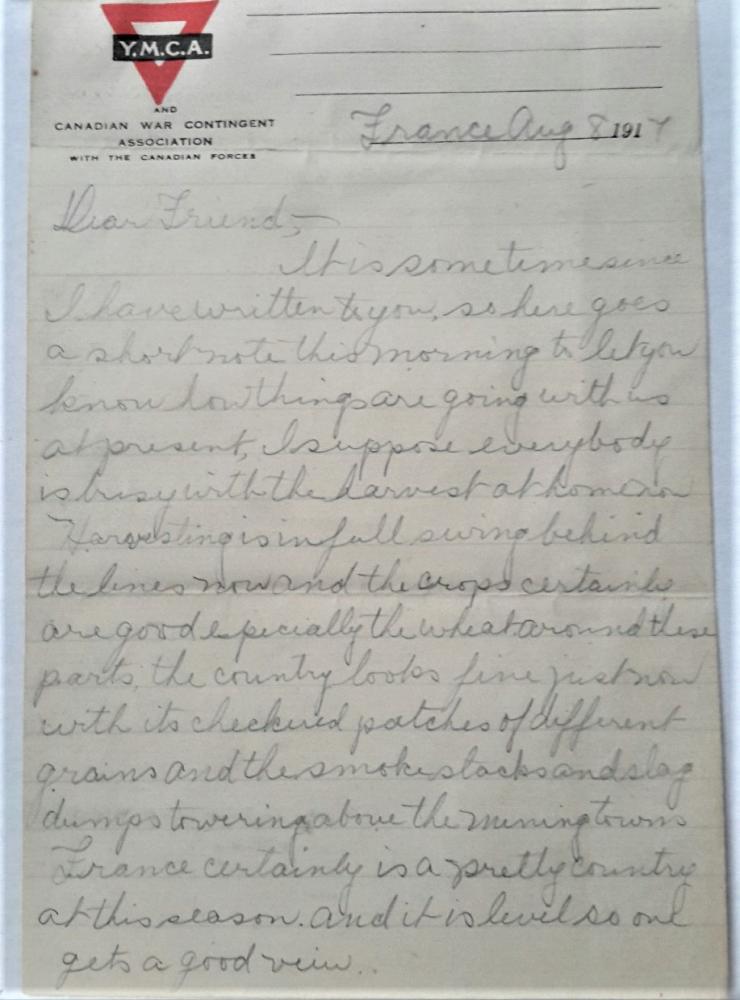 Y.M.C.A.
AND
CANADIAN WAR CONTINGENT
ASSOCIATION
WITH THE CANADIAN FORCES
France Aug 8 1917
Dear Friend,—
It is sometime since
I have written to you, so here goes
a short note this morning to let you
know how things are going with us
at present, I suppose everybody
is busy with the harvest at home now
Harvesting is in full swing behind
the lines now and the crops certainly
are good especially the wheat around these
parts, the country looks fine just now
with its checkered patches of different
grains and the smoke stacks and slag
dumps towering above the mining towns
France certainly is a pretty country
at this season. and it is level so one
gets a good veiw..